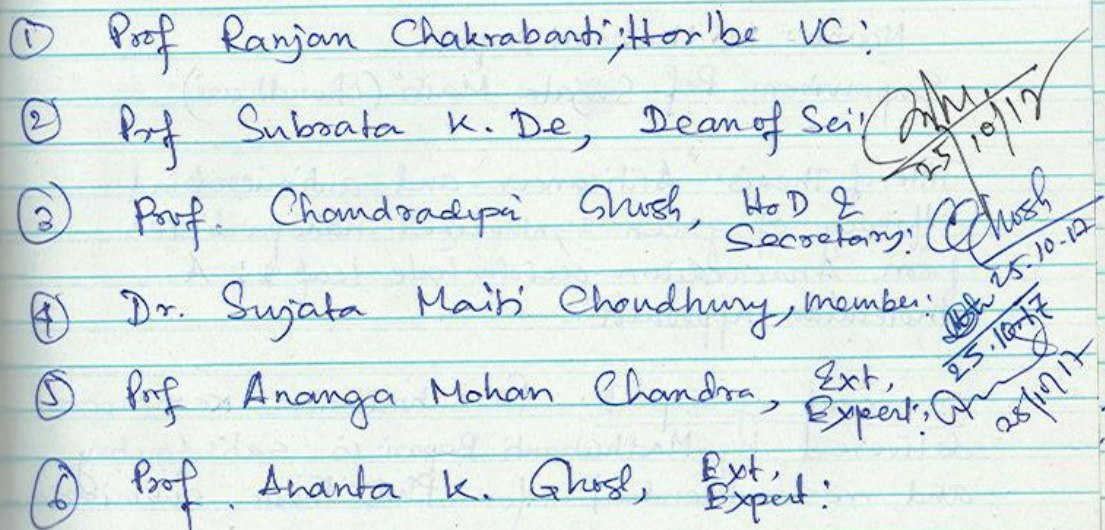 ① Prof Ranjan Chakrabarti; Hon'be VC:
② Prof Subrata K. De, Dean of Sci: 25/10/17
③ Prof. Chandradipa Ghosh, HoD &
Secretary: CGhosh 25.10.17
④ Dr. Sujata Maiti Choudhury, member: 25.10.17
⑤ Prof Ananga Mohan Chandra, Ext,
Expert: 25/10/17
⑥ Prof. Ananta K. Ghosh, Ext,
Expert: